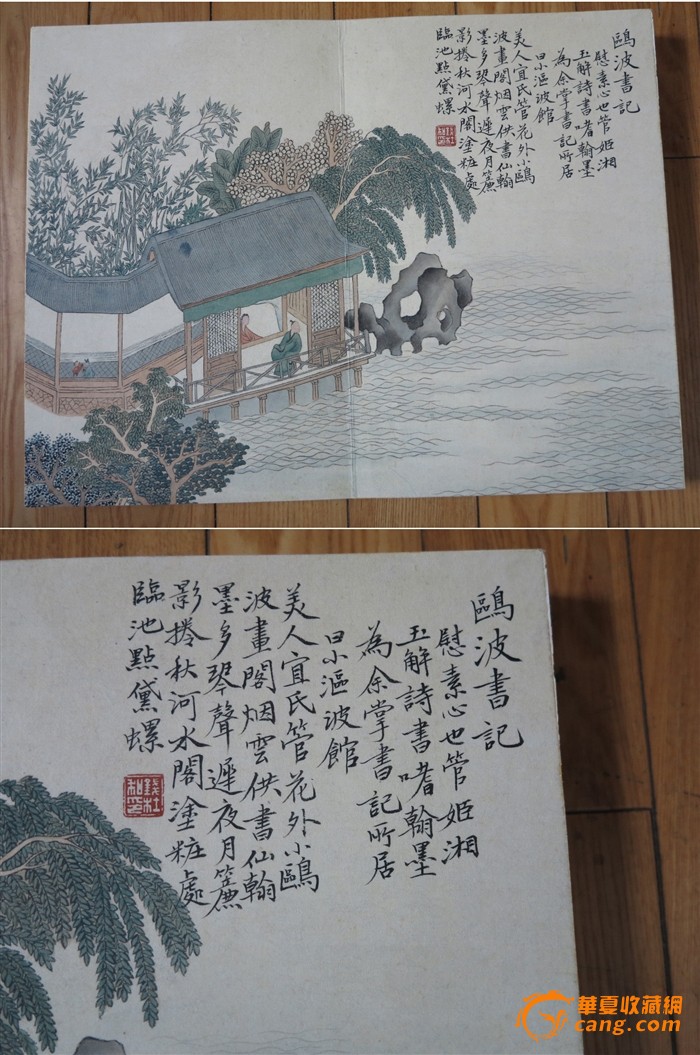 鷗波書記
慰素心也管姬湘
玉解詩書嗜翰墨
為余掌書記所居
曰小漚波館
美人宜氏管花外小鷗
波畫閣烟雲供書仙翰
墨多琴聲遲夜月簾
影捲秋河水閣塗粧處
臨池點黛螺
鷗波書記
慰素心也管姬湘
玉解詩書嗜翰墨
為余掌書記所居
曰小漚波館
美人宜氏管花外小鷗
波畫閣烟雲供書仙翰
墨多琴聲遲夜月簾
影捲秋河水閣塗粧處
臨池點黛螺
錢杜
華夏收藏網
cang.com